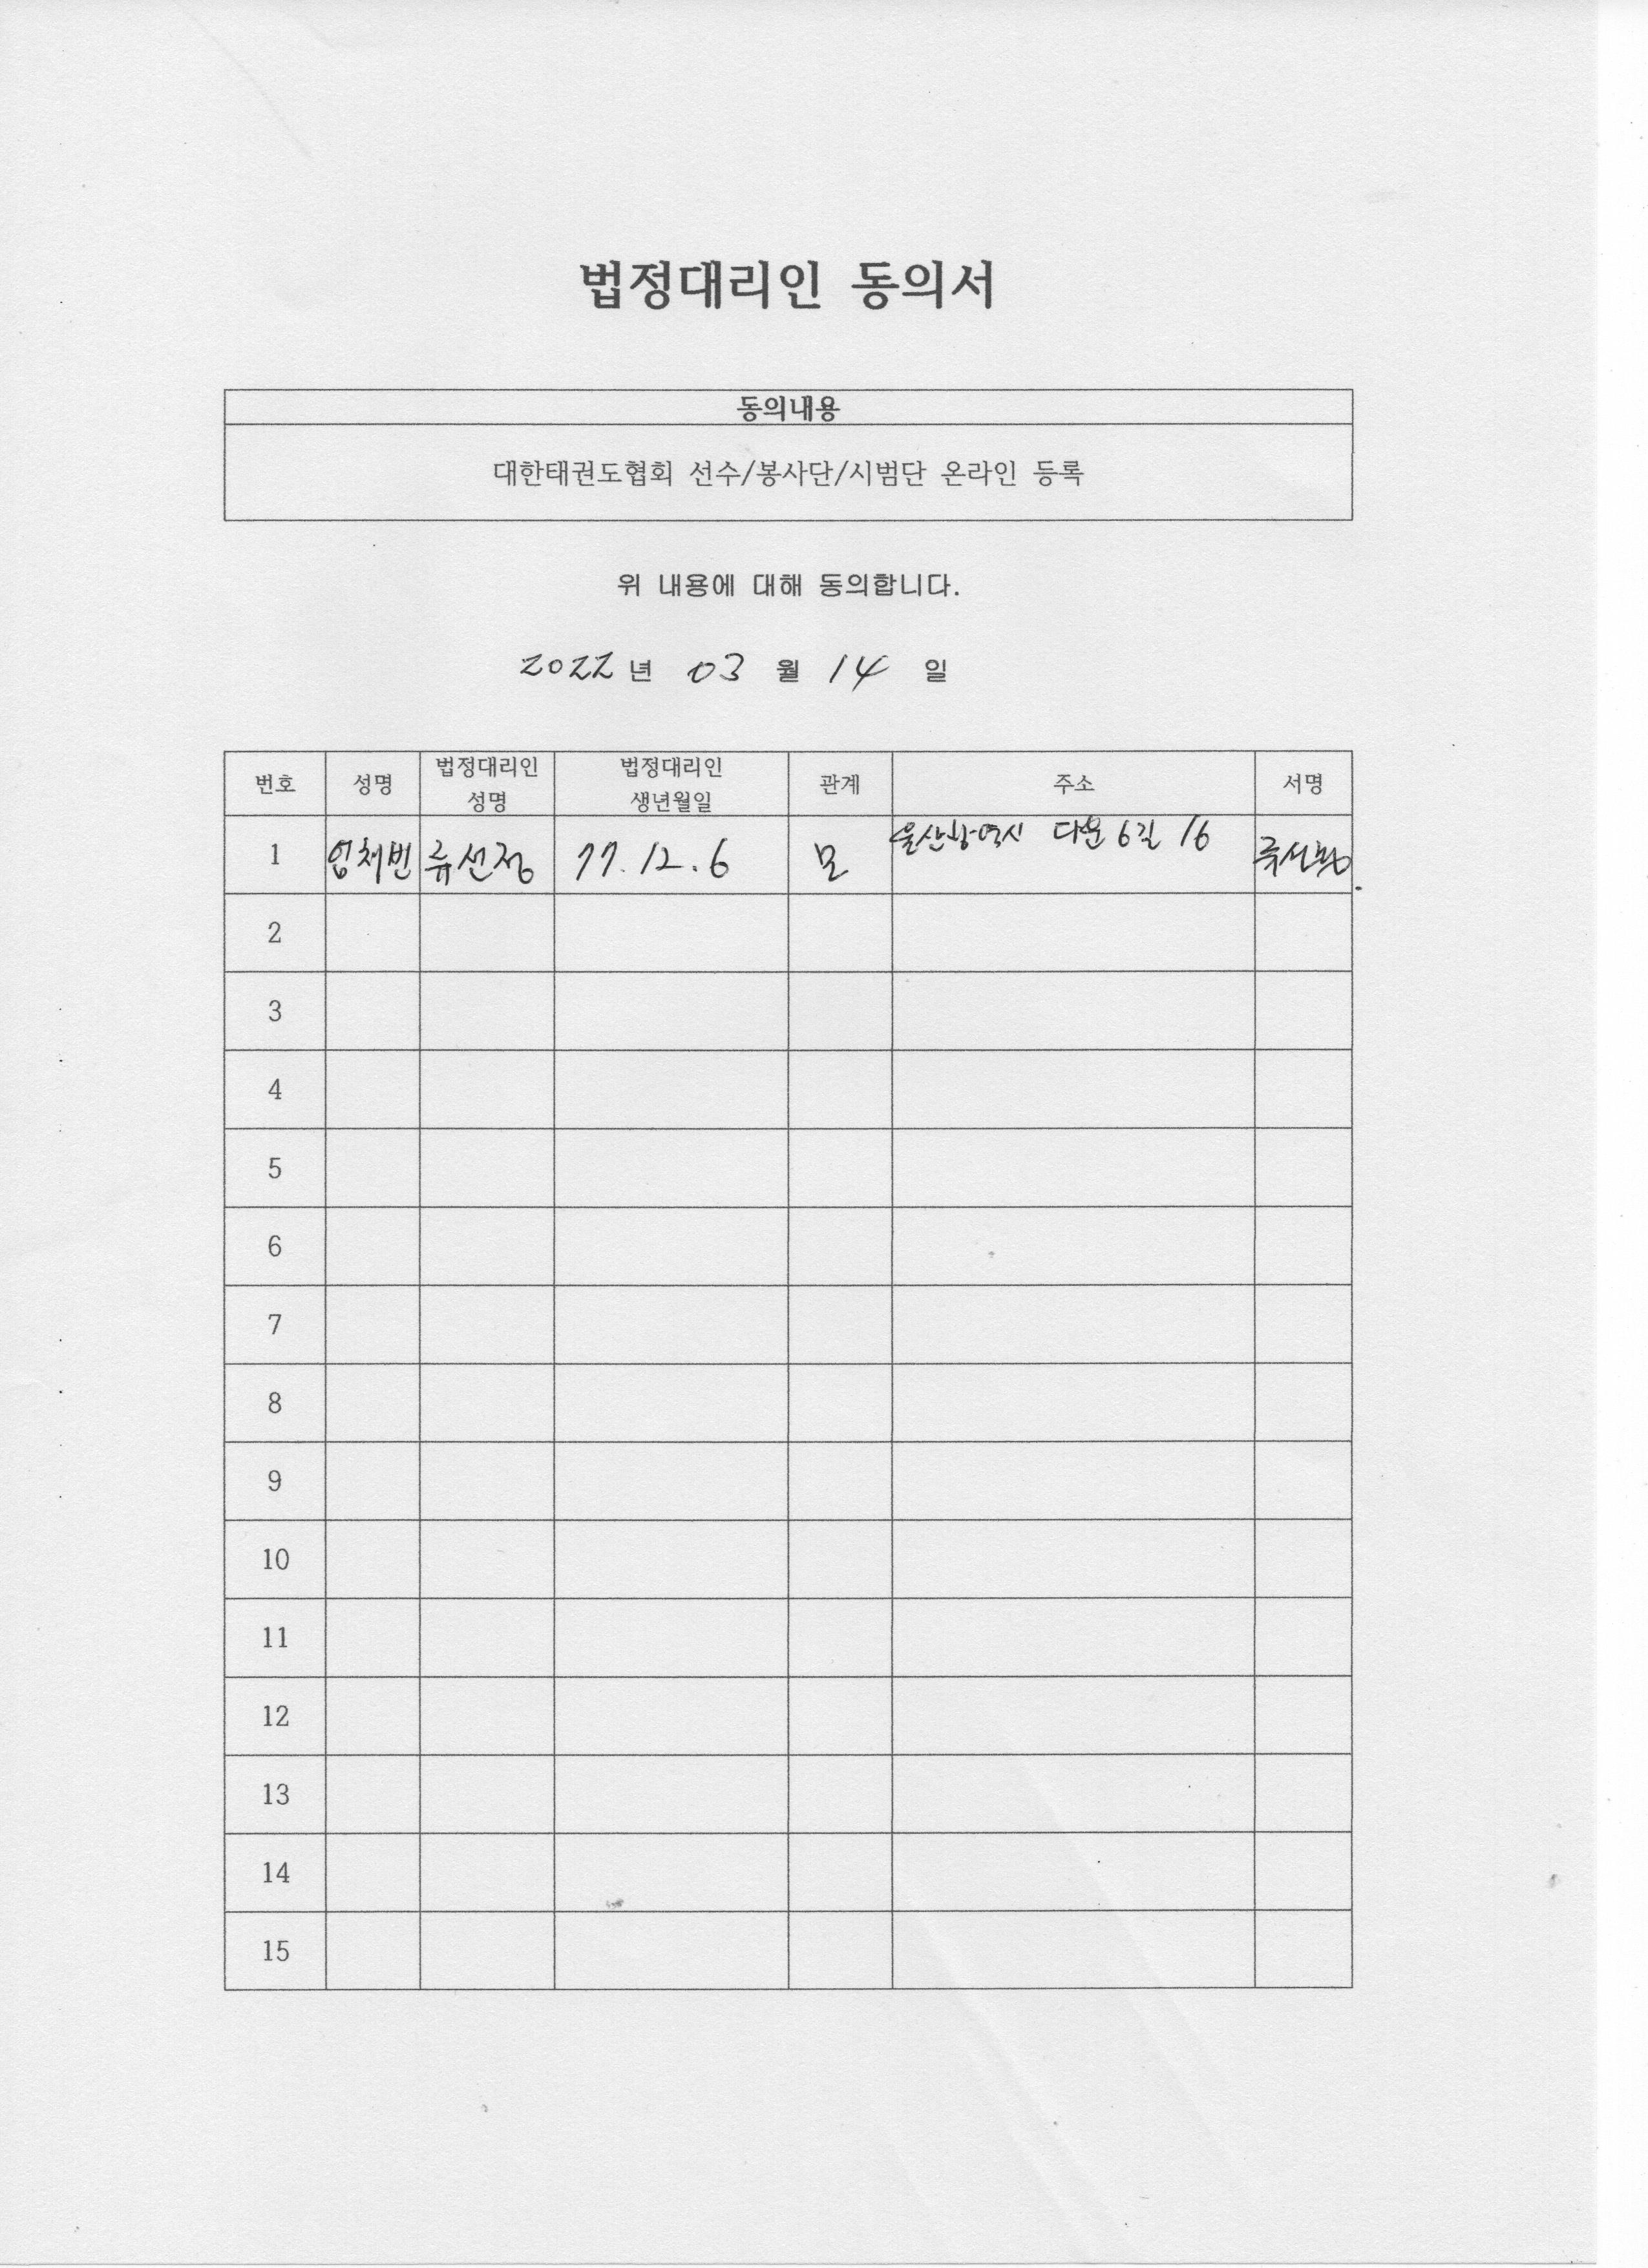 법정대리인 동의서
동의내용
대한태권도협회 선수/봉사단/시범단 온라인 등록
위 내용에 대해 동의합니다.
2022 년 03 월 14 일
번호 성명 법정대리인 성명 법정대리인 생년월일 관계 주소 서명
1 엄채빈 류선정 77. 12. 6 모 울산광역시 다운6길 16 류선정
2
3
4
5
6
7
8
9
10
11
12
13
14
15